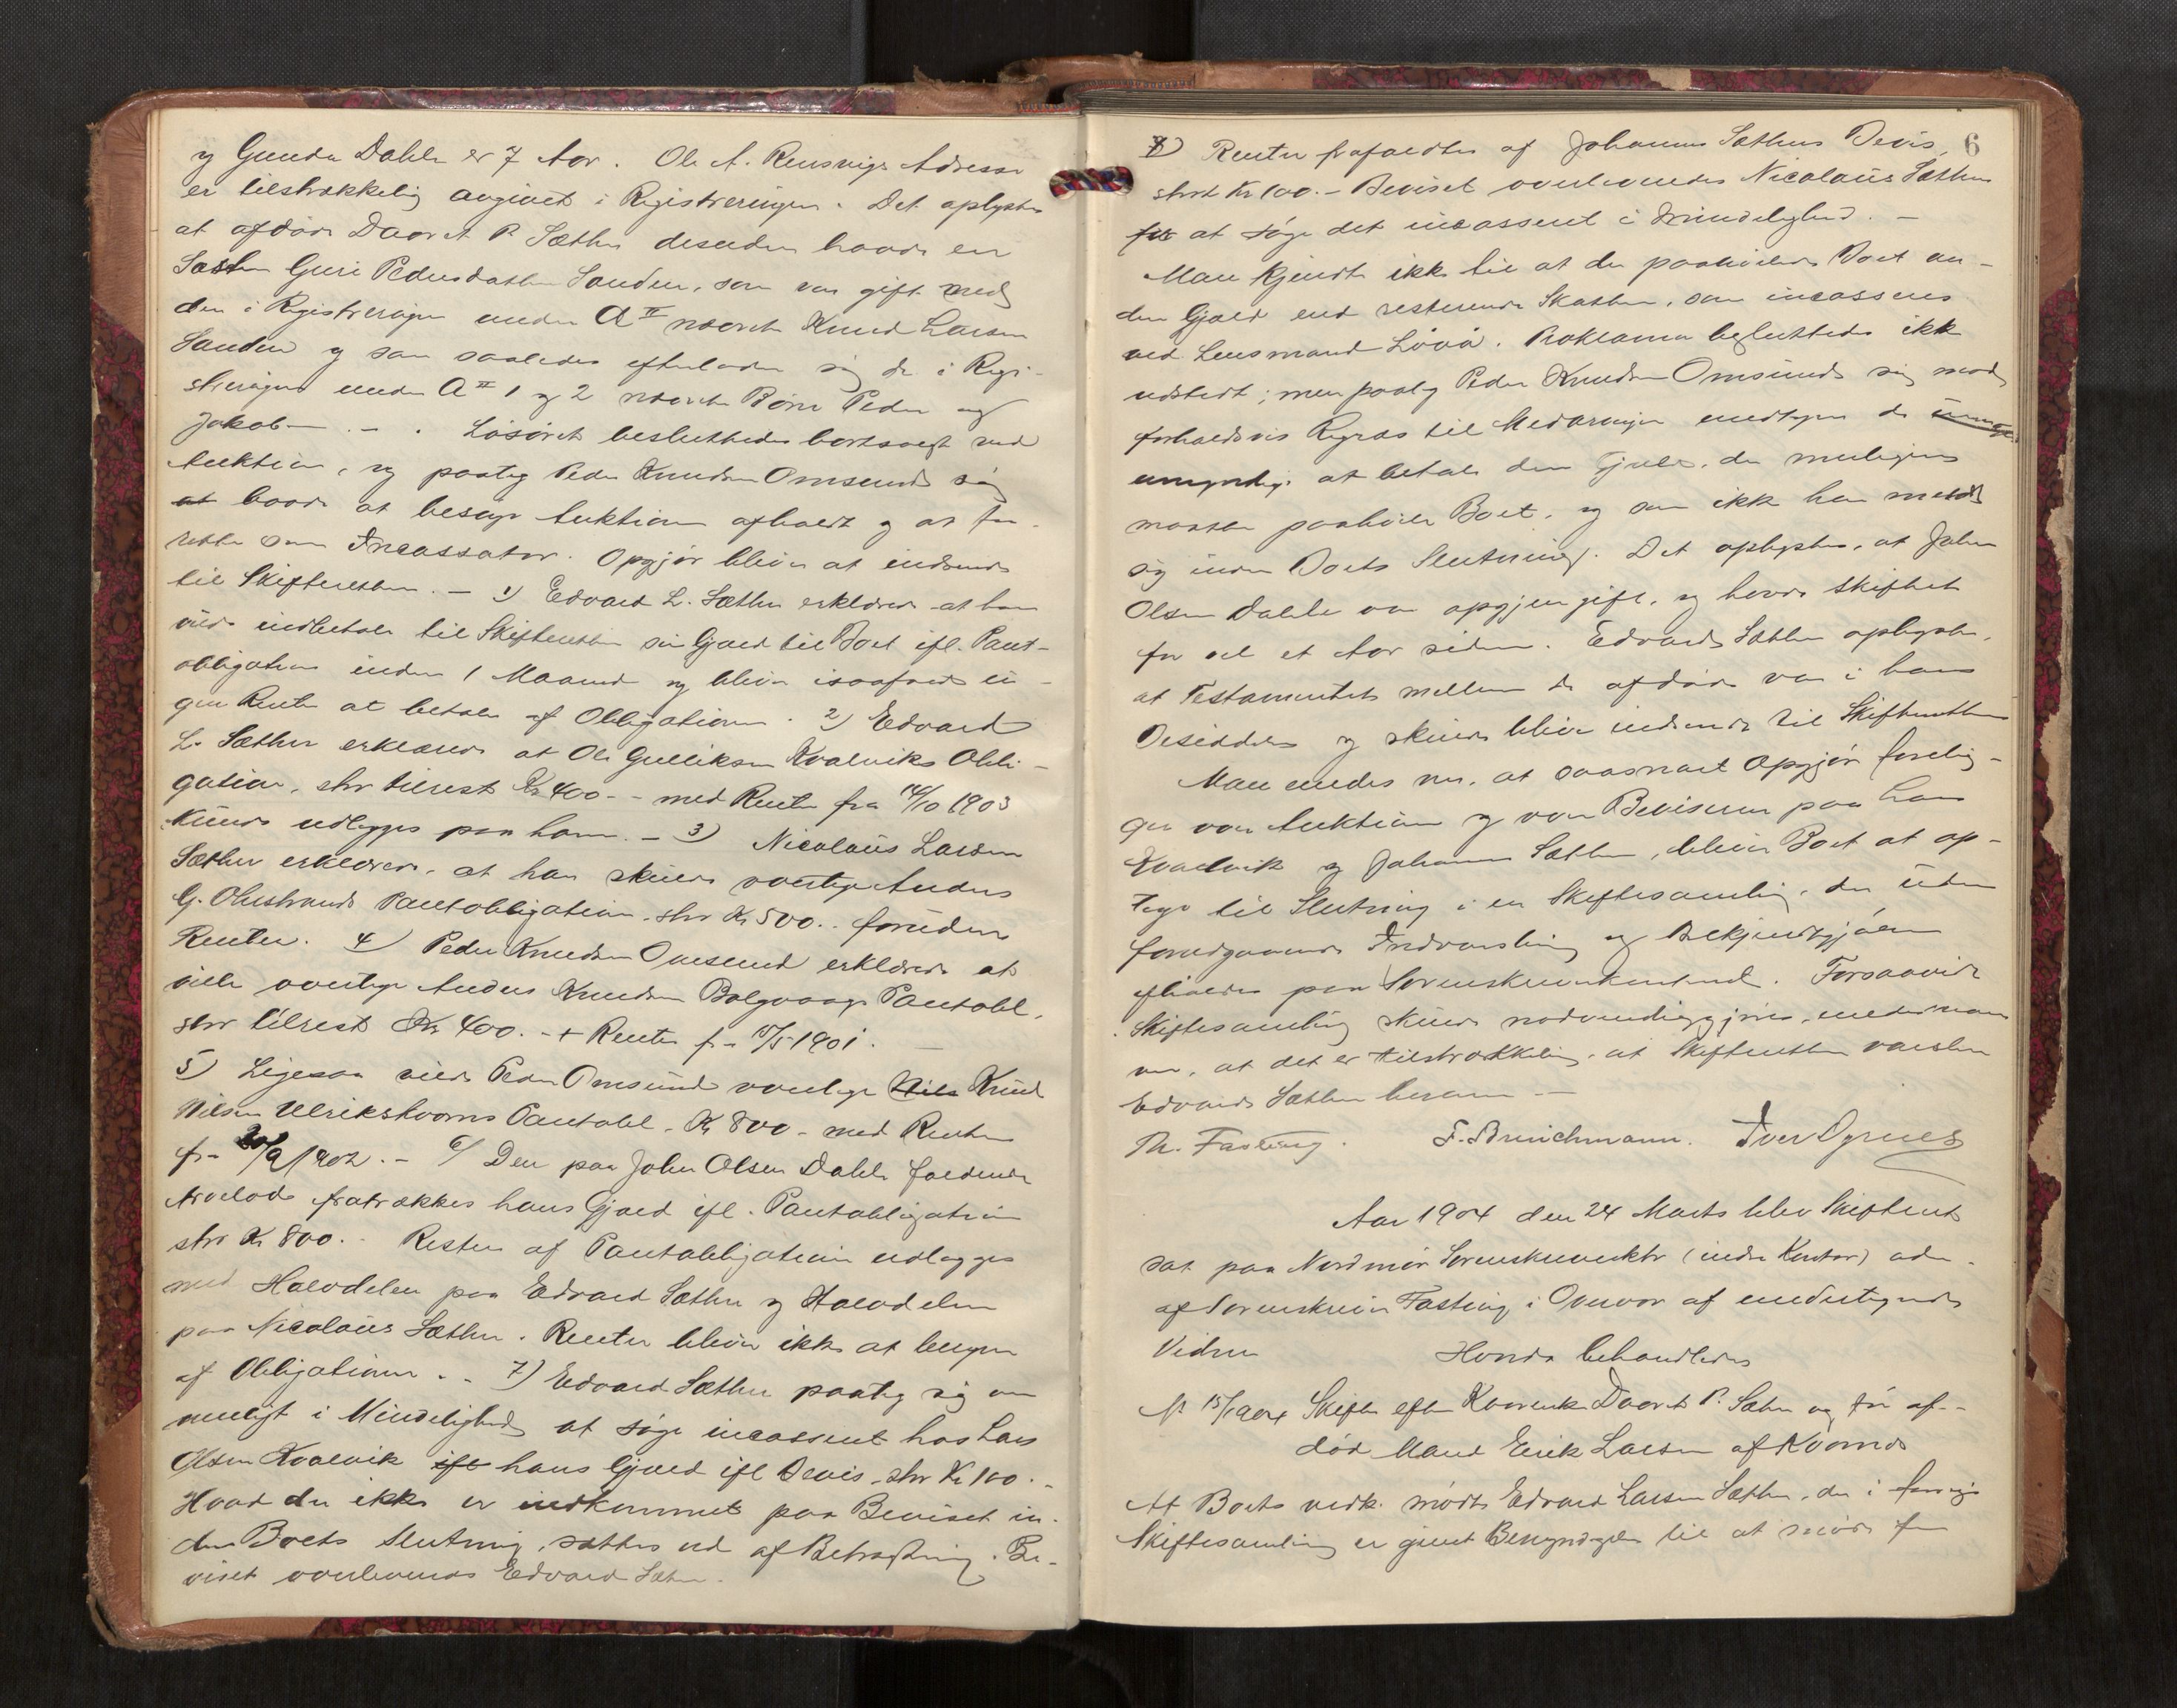 og Gunda Dahle er 7 Aar. Ole A. Rensvigs Adresse
er tilstrækkelig angivet i Registreringen. Det oplystes
at afdøde Daaret P. Sæther desuden havde en
Søster Guri Pedersdatter Sanden, som var gift med
den i Registreringen under A II nævnte Knud Larsen
Sanden og som saaledes efterlader sig de i Regi-
streringen under A II 1 og 2 nævnte Børn Peder og
Jakob. - . Løsøret besluttedes bortsolgt ved
Auktion, og paatog Peder Knudsen Omsund sig
at baade at besørge Auktionen afholdt og at fun-
gere som Incassator. Opgjør bliver at indsende
til Skifteretten. - 1) Edvard L. Sæther erklærede at han
vilde indbetale til Skifteretten sin Gjæld til Boet ifl. Pant-
obligation inden 1 Maaned og bliver isaafald in-
gen Renter at betale af Obligationen. 2) Edvard
L. Sæther erklærede at Ole Gulliksen Kvalviks Obli-
gation, stor tilrest Kr 400 - med Renter fra 14/10 1903
kunde udlægges paa ham. - 3) Nicolaus Larsen
Sæther erklærede, at han skulde overtage Anders
G. Ohrstrands Pantobligation, stor Kr 500.. foruden
Renter. 4) Peder Knudsen Omsund erklærede at
ville overtage Anders Knudsen Bolgvaags Pantobl.
stor tilrest Kr 400. - + Renter fra 15/5 1901.
5) Ligesaa vilde Peder Omsund overtage Nils Knud
Nilsen Ulrikstrøms Pantobl. Kr 800 - med Renter
fra 20/9 1902. - 6) Den paa John Olsen Dahle faldende
Arvelod fratrækkes hans Gjæld ifl. Pantobligation
stor Kr 800.. Resten af Pantobligationen udlægges
med Halvdelen paa Edvard Sæther og Halvdelen
paa Nicolaus Sæther. Renter bliver ikke at beregne
af Obligationen. . 7) Edvard Sæther paatog sig om
muligt i Mindelighed at søge incasseret hos Lars
Olsen Kvalvik ifl hans Gjæld ifl Bevis, stor Kr 100. -
Hvad der ikke er indkommet paa Beviset in-
den Boets Slutning, sættes ud af Betragtning. Be-
viset overleveredes Edvard Sæther.
6
8) Renter frafaldtes af Johannes Sæthers Bevis,
stort Kr 100. - Beviset overleveredes Nicolaus Sæther
for at søge det incasseret i Mindelighed. -
Man kjendte ikke til at der paahvilede Boet an-
den Gjæld end resterende Skatter, som incasseres
ved Lensmand Lövö. Proklama besluttedes ikke
udstedt; men paatog Peder Knudsen Omsund sig mod
forholdsvis Regres til Medarvinger undtagen de
umyndige at betale den Gjæld, der muligens
maatte paahvile Boet, og som ikke har meldt
sig inden Boets Slutning. Det oplystes, at John
Olsen Dahle var igjen gift, og havde skiftet
for vel et Aar siden. Edvard Sæther oplyste,
at Testamentet mellem de afdøde var i hans
Besiddelse og skulde blive indsendt til Skifteretten
Man enedes om, at saasnart Opgjør forelig-
ger over Auktionen og over Beviserne paa Lars
Kvalvik og Johannes Sæther, bliver Boet at op-
tage til Slutning i en Skiftesamling, der uden
forudgaaende Indvarsling og Bekjendtgjørelse
afholdes paa Sorenskriverkontoret. Forsaavidt
Skiftesamling skulde nødvendiggjøres, enedes man
om, at det er tilstrækkelig, at Skifteretten varsler
Edvard Sæther herom -
Th. Fasting. F. Bruichmann. Iver Ognes
Aar 1904 den 24 Marts blev Skifteret
sat paa Nordmør Sorenskriverktr (indre Kontor) adm.
af Sorenskriver Fasting i Overvær af undertegnede
Vidner Hvorda behandledes
No 15/1904 Skifte efter Kaarenke Daaret P. Sæther og før af-
død Mand Erik Larsen af Kvernes
Af Boets vedk. mødte Edvard Larsen Sæther, der i forrige
Skiftesamling er givet Bemyndigelse til at møde for